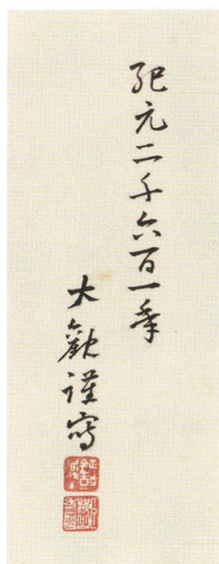 紀元二千六百一年
大観謹寫